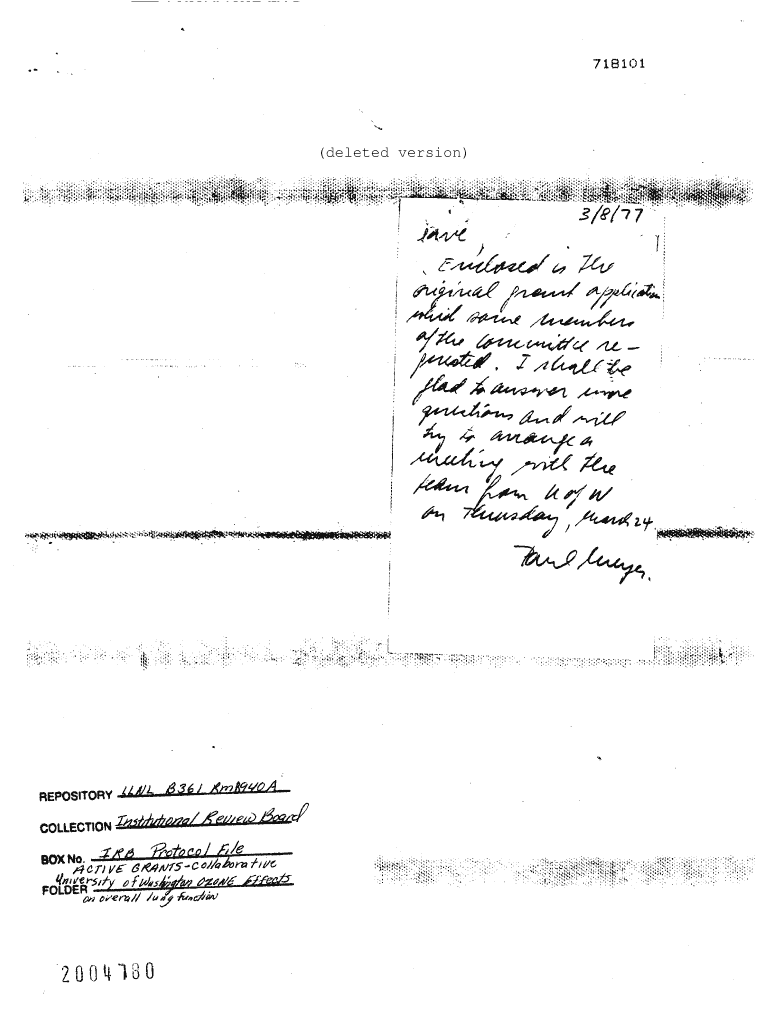 718101
(deleted version)
3/8/77
Enclosed is the
original grant application
which some members
of the committee re-
quested. I shall be
glad to answer more
questions and will
try to arrange a
meeting with the
team from U of W
on Thursday, March 24
Paul Meyer.
REPOSITORY LLNL B361 Rm1940A
COLLECTION Institutional Review Board
BOX No. IRB Protocol File
ACTIVE GRANTS-Collaborative
FOLDER University of Washington OZONE Effects
on overall lung function
2004780